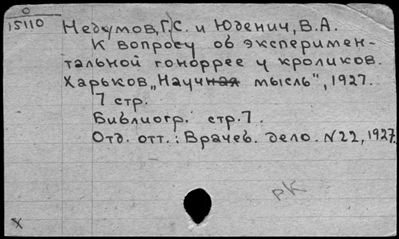 0
15110
Недумов, Г.С. и Юденич, В.А.
К вопросу об эксперимен-
тальной гоноррее у кроликов.
Харьков, „Научная мысль", 1927.
7 стр.
Библиогр. стр. 7.
Отд. отт.: Врачев. дело. N22, 1927.
рК
X